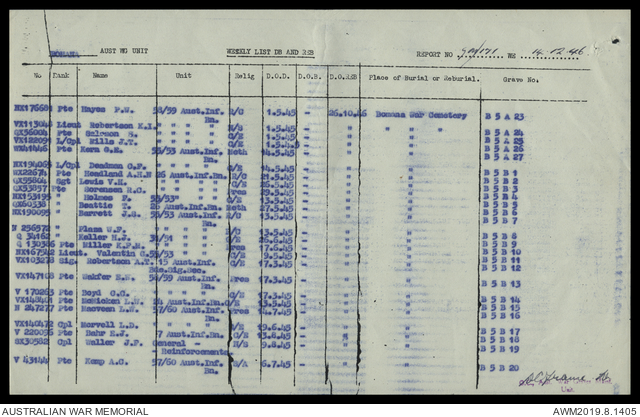 BOMANA AUST WG UNIT WEEKLY LIST DB AND REB REPORT NO WE 14.12.46
No. Rank Name Unit Relig D.O.D. D.O.B. D.O.REB Place of Burial or Reburial. Grave No.
NX176681 Pte Hayes P.W. 58/59 Aust.Inf. Bn. R/C 1.5.45 - 26.10.46 Bomana War Cemetery B 5 A 23
VX113044 Lieut Robertson K.I. " " " 1.5.45 - " " " " B 5 A 24
QX36004 Pte " " " C/E 1.5.45 - " B 5 A 25
VX122091 L/Cpl Mills J.T. " " " C/E 1.5.45 - " B 5 A 26
Pte Kern G.H. 55/53 Aust.Inf. Bn. Meth 14.5.45 - " B 5 A 27
L/Cpl Deadman C.F. " " " C/E 14.5.45 - " B 5 B 1
QX22674 Pte A.H.N 26 Aust.Inf. Bn. C/E 21.5.45 - " B 5 B 2
QX55804 Sgt Lewis V.H. " " " C/E 25.5.45 - " B 5 B 3
QX53857 Pte Sorensen H.C. " " " Pres 25.5.45 - " B 5 B 4
NX153195 " Holmes F. 55/53" C/E 13.5.45 - " B 5 B 5
QX60333 " Beattie T. 26 Aust.Inf. Bn. Meth 27.5.45 - " B 5 B 6
NX190095 " Barrett J.S. 55/53 Aust.Inf. Bn. C/E 13.5.45 - " B 5 B 7
N 256572 " W.F. " " " 13.5.45 - " B 5 B 8
Q 34162 " Keller H.J. 31/51 C/E 26.6.45 - " B 5 B 9
Q 130386 Pte Miller K.F.M. " " " Pres 17.6.45 - " B 5 B 10
NX167542 Lieut. Valentin C. C/E 9.5.45 - " B 5 B 11
VX103278 Sig. Robertson A.T. 15 Aust.Inf. Bde.Sig.Sec. C/E 7.3.45 - " B 5 B 12
VX147108 Pte H.N. 58/59 Aust.Inf. Bn. Pres 17.3.45 - " B 5 B 13
V 170263 Pte Boyd C.G. " " " C/E 17.3.45 - " B 5 B 14
VX148401 Pte 14 Aust.Inf.Bn. C/E 13.5.45 - " B 5 B 15
Pte 57/60 Aust.Inf. Bn. Pres 14.7.45 - " B 5 B 16
VX140472 Cpl Morvell L.D. " " " 19.6.45 - " B 5 B 17
V 220056 Pte Behr E.J. 7 Aust.Inf. Bn. C/E 13.8.45 - " B 5 B 18
SX30582 Cpl Waller J.P. General - Reinforcements B/C 9.8.45 - " B 5 B 19
V 43144 Pte Kemp A.C. 57/60 Aust.Inf. Bn. 6.7.45 - " B 5 B 20
AUSTRALIAN WAR MEMORIAL AWM2019.8.1405